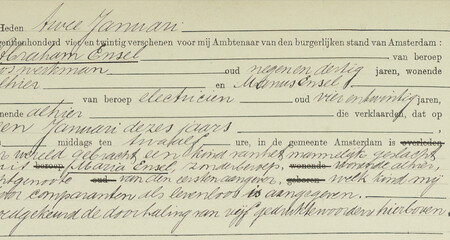 Heden twee Januari
negentienhonderd vier en twintig verschenen voor mij Ambtenaar van den burgerlijken stand van Amsterdam :
Abraham Ensel van beroep
loswerkman oud negen en dertig jaren, wonende
alhier en Manus Ensel
van beroep electricien oud vier en twintig jaren,
wonende alhier die verklaarden, dat op
een Januari dezes jaars
des middags ten twaalf ure, in de gemeente Amsterdam is overleden
ter wereld gebracht een kind van het mannelijk geslacht
uit beroep Maria Ensel zonder beroep wonende wonende alhier,
echtgenoote oud van den eersten aangever, geboren welk kind mij
door comparanten als levenloos is aangegeven.
Goedgekeurd de doorhaling van vijf gedrukte woorden hierboven